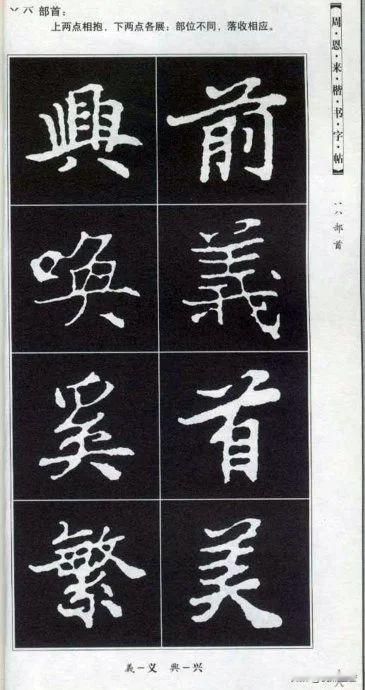 丷八 部首：
上两点相抱，下两点各展；部位不同，落收相应。
【周·恩·来·楷·书·字·帖】
丷八部首
前
義
首
美
興
唤
奚
繁
義－义 興－兴